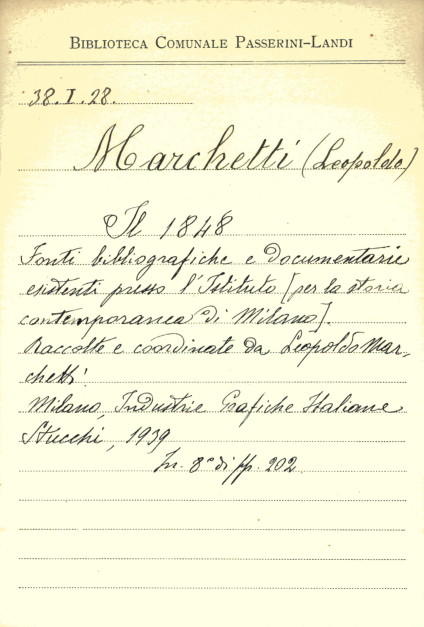 BIBLIOTECA COMUNALE PASSERINI-LANDI
38.I.28.
Marchetti (Leopoldo)
Il 1848
Fonti bibliografiche e documentarie
esistenti presso l'Istituto [per la storia
contemporanea di Milano].
Raccolte e coordinate da Leopoldo Mar-
chetti.
Milano, Industrie Grafiche Italiane
Stucchi, 1939
In 8° di pp. 202